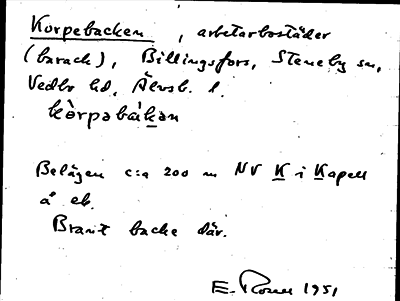 Korpebacken, arbetarbostäder
(barack), Billingsfors, Steneby sn,
Vedbo hd, Älvsb. l.
kòrpəbákən
Belägen c:a 200 m NV K i Kapell
å ek.
Brant backe där.
E. Rosell 1951